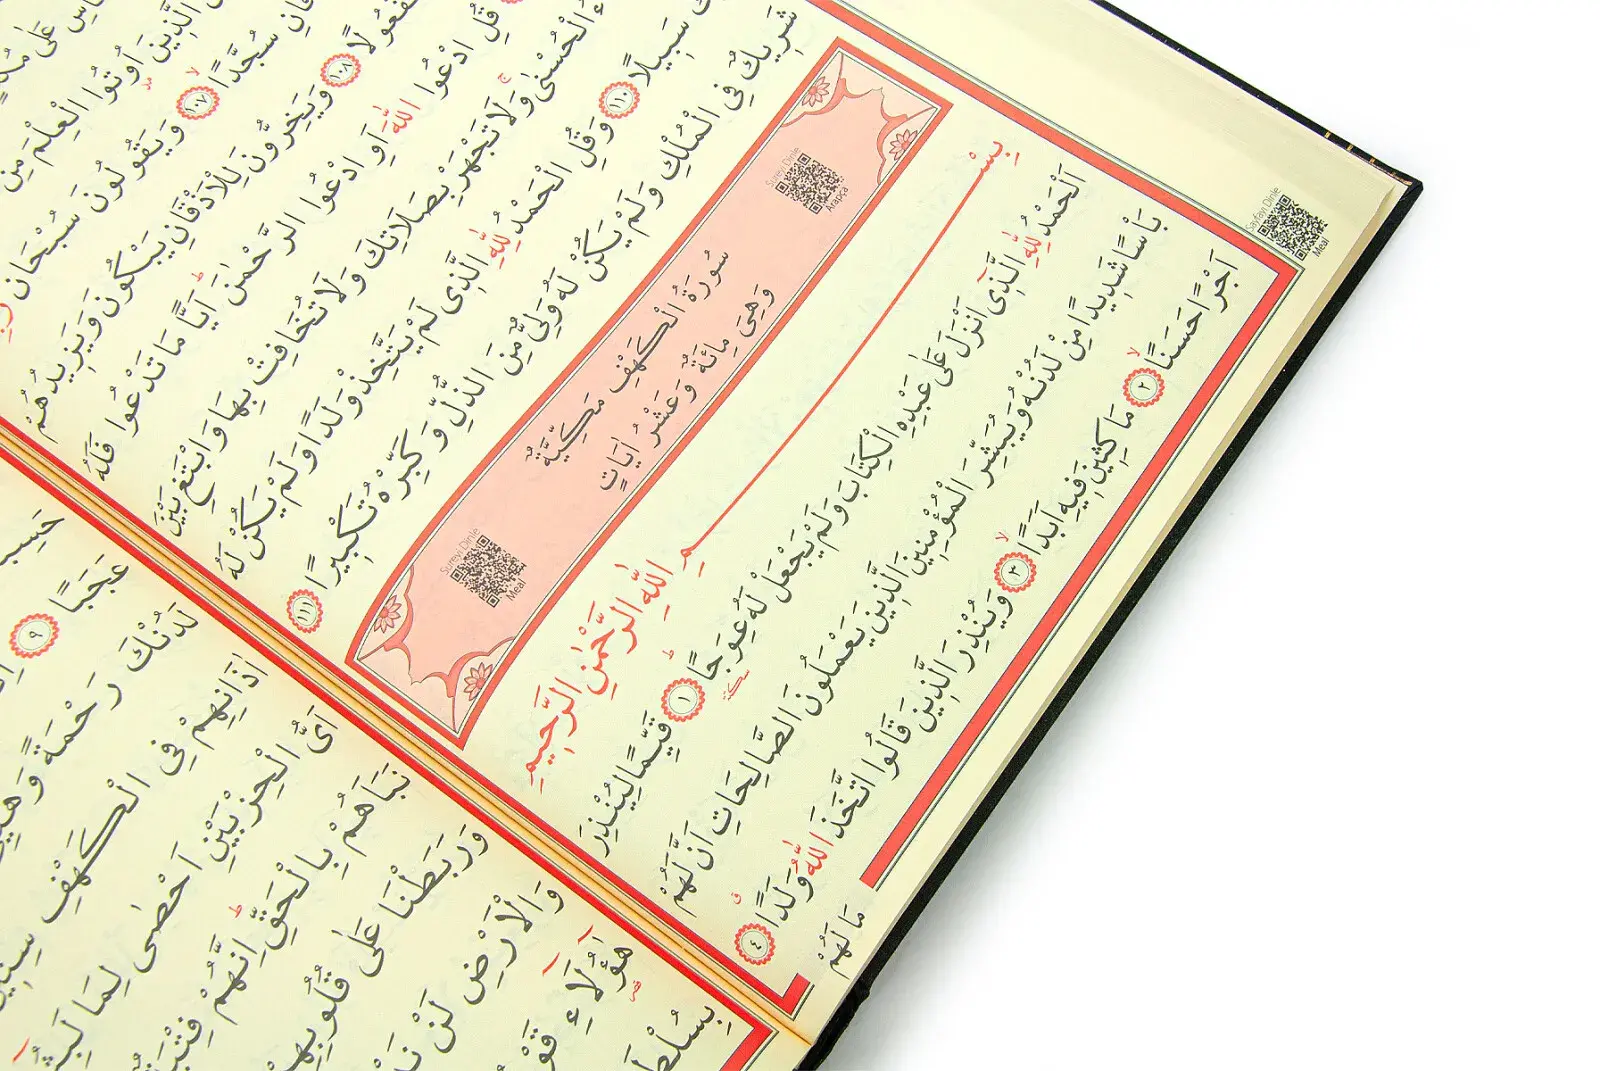 اُوتُوا الْعِلْمَ مِنْ
سُجَّدًا ١٠٧ وَيَقُولُونَ سُبْحَانَ
١٠٨ وَيَخِرُّونَ لِلْاَذْقَانِ يَبْكُونَ وَيَزِيدُهُمْ
قُلِ ادْعُوا اللّٰهَ اَوِ ادْعُوا الرَّحْمٰنَ اَيًّا مَا تَدْعُوا فَلَهُ
الْحُسْنٰى وَلَا تَجْهَرْ بِصَلَاتِكَ وَلَا تُخَافِتْ بِهَا وَابْتَغِ بَيْنَ
سَبِيلًا ١١٠ وَقُلِ الْحَمْدُ لِلّٰهِ الَّذِى لَمْ يَتَّخِذْ وَلَدًا وَلَمْ يَكُنْ لَهُ
شَرِيكٌ فِى الْمُلْكِ وَلَمْ يَكُنْ لَهُ وَلِىٌّ مِنَ الذُّلِّ وَكَبِّرْهُ تَكْبِيرًا ١١١
Sureyi Dinle
Arapça
سُورَةُ الْكَهْفِ مَكِّيَّةٌ
وَهِىَ مِائَةٌ وَعَشْرُ اٰيَاتٍ
Sureyi Dinle
Meal
بِسْمِ اللّٰهِ الرَّحْمٰنِ الرَّحِيمِ
اَلْحَمْدُ لِلّٰهِ الَّذِٓى اَنْزَلَ عَلٰى عَبْدِهِ الْكِتَابَ وَلَمْ يَجْعَلْ لَهُ عِوَجًا ١ قَيِّمًا لِيُنْذِرَ
بَأْسًا شَدِيدًا مِنْ لَدُنْهُ وَيُبَشِّرَ الْمُؤْمِنِينَ الَّذِينَ يَعْمَلُونَ الصَّالِحَاتِ اَنَّ لَهُمْ
اَجْرًا حَسَنًا ٢ مَاكِثِينَ فِيهِ اَبَدًا ٣ وَيُنْذِرَ الَّذِينَ قَالُوا اتَّخَذَ اللّٰهُ وَلَدًا ٤
مَا لَهُمْ
Sayfayı Dinle
Meal
عَجَبًا ٩
لَدُنْكَ رَحْمَةً
اٰذَانِهِمْ فِى الْكَهْفِ
اَىُّ الْحِزْبَيْنِ اَحْصٰى لِمَا
نَبَاَهُمْ بِالْحَقِّ اِنَّهُمْ
وَرَبَطْنَا عَلٰى قُلُوبِهِمْ
وَالْاَرْضِ لَنْ
هٰٓؤُ۬لَٓاءِ